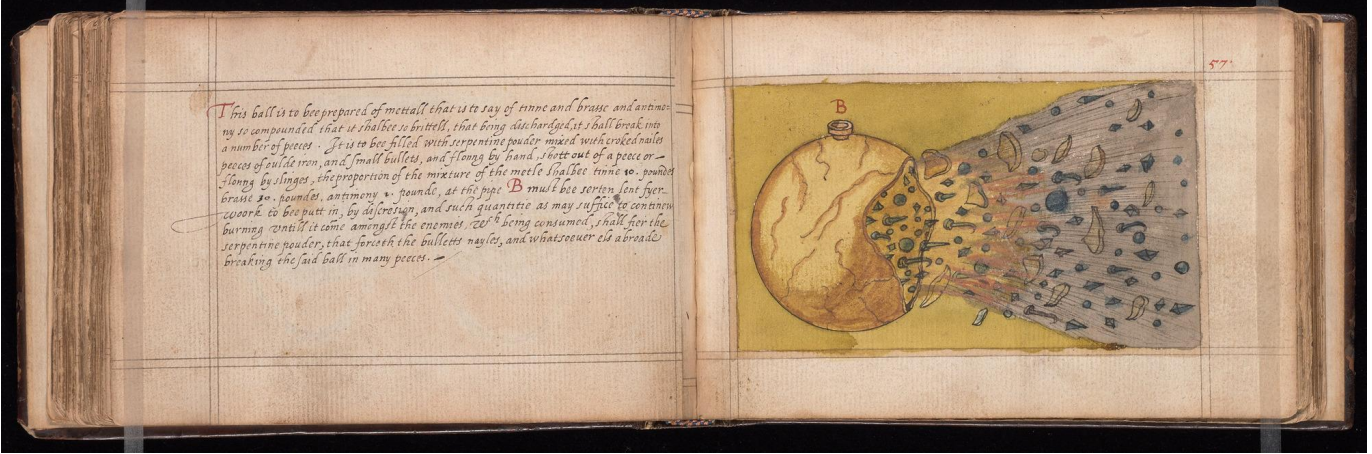 This ball is to bee prepared of mettall that is to say of tinne and brasse and antimo=
ny so compounded that it shalbee so brittell, that being dischardged, it shall break into
a number of peeces. It is to bee filled with serpentine pouder mixed with croked nailes
peeces of oulde iron, and small bullets, and flonng by hand, shott out of a peece or
flonng by slinges, the proportion of the mixture of the metle shalbee tinne 10. poundes
brasse 10. poundes, antimony 2. pounde, at the pipe B must bee serten lent fyer
woork to bee putt in, by discresion, and such quantitie as may suffice to contineu
burning vntill it come amongst the enemies, wch being consumed, shall fier the
serpentine pouder, that forceth the bulletts nayles, and whatsoeuer els abroade
breaking the said ball in many peeces.
B
57